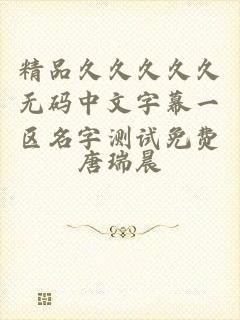 精品久久久久久
无码中文字幕一
区名字测试免费
唐瑞晨